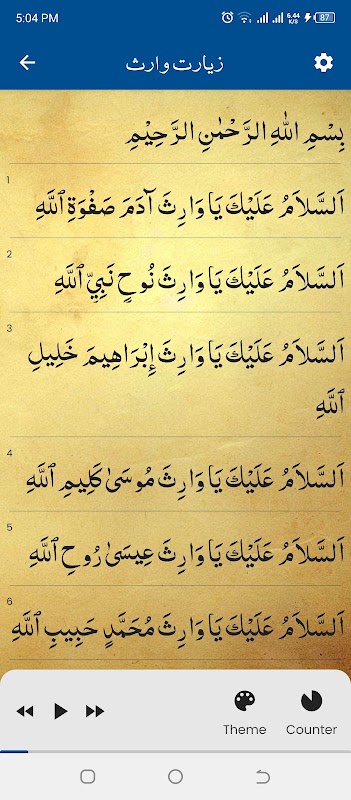 5:04 PM 6.44 K/S 87
زیارت وارث
بِسْمِ اللهِ الرَّحْمٰنِ الرَّحِيْمِ
1
اَلسَّلاَمُ عَلَيْكَ يَا وَارِثَ آدَمَ صَفْوَةِ ٱللَّهِ
2
اَلسَّلاَمُ عَلَيْكَ يَا وَارِثَ نُوحٍ نَبِيِّ ٱللَّهِ
3
اَلسَّلاَمُ عَلَيْكَ يَا وَارِثَ إِبْرَاهِيمَ خَلِيلِ
ٱللَّهِ
4
اَلسَّلاَمُ عَلَيْكَ يَا وَارِثَ مُوسَىٰ كَلِيمِ ٱللَّهِ
5
اَلسَّلاَمُ عَلَيْكَ يَا وَارِثَ عِيسَىٰ رُوحِ ٱللَّهِ
6
اَلسَّلاَمُ عَلَيْكَ يَا وَارِثَ مُحَمَّدٍ حَبِيبِ ٱللَّهِ
Theme Counter